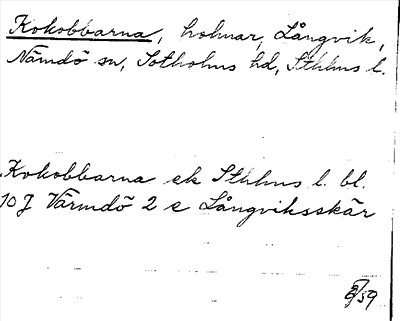 Kokobbarna, holmar, Långvik,
Nämdö sn, Sotholms hd, Sthlms l.
Kokobbarna ek Sthlms l. bl.
10J Värmdö 2 e Långviksskär
/59